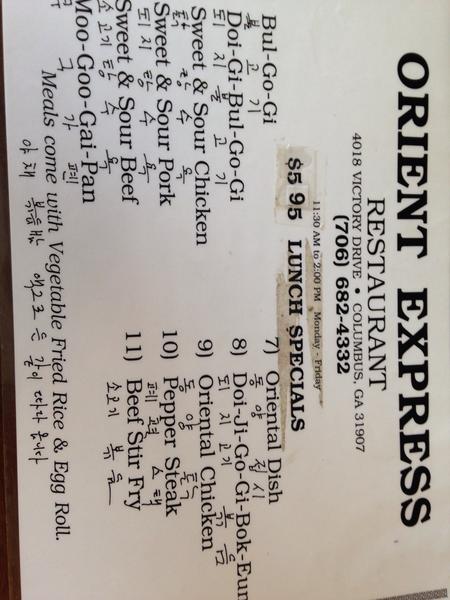 ORIENT EXPRESS
RESTAURANT
4018 VICTORY DRIVE • COLUMBUS, GA 31907
(706) 682-4332
11:30 AM to 2:00 PM Monday - Friday
$5 95 LUNCH SPECIALS
Bul-Go-Gi
불 고 기
Doi-Gi-Bul-Go-Gi
되 지 불 고 기
Sweet & Sour Chicken
탕 수 육
Sweet & Sour Pork
되 지 탕 수 육
Sweet & Sour Beef
소고기 탕 수 육
Moo-Goo-Gai-Pan
구 가 펜
7) Oriental Dish
동 양 접 시
8) Doi-Ji-Go-Gi-Bok-Eum
되 지 고 기 볶 음
9) Oriental Chicken
동 양
10) Pepper Steak
스 택
11) Beef Stir Fry
소 고 기 볶 음
Meals come with Vegetable Fried Rice & Egg Roll.
야 채 볶음밥 에그로 은 같이 따라 옵니다